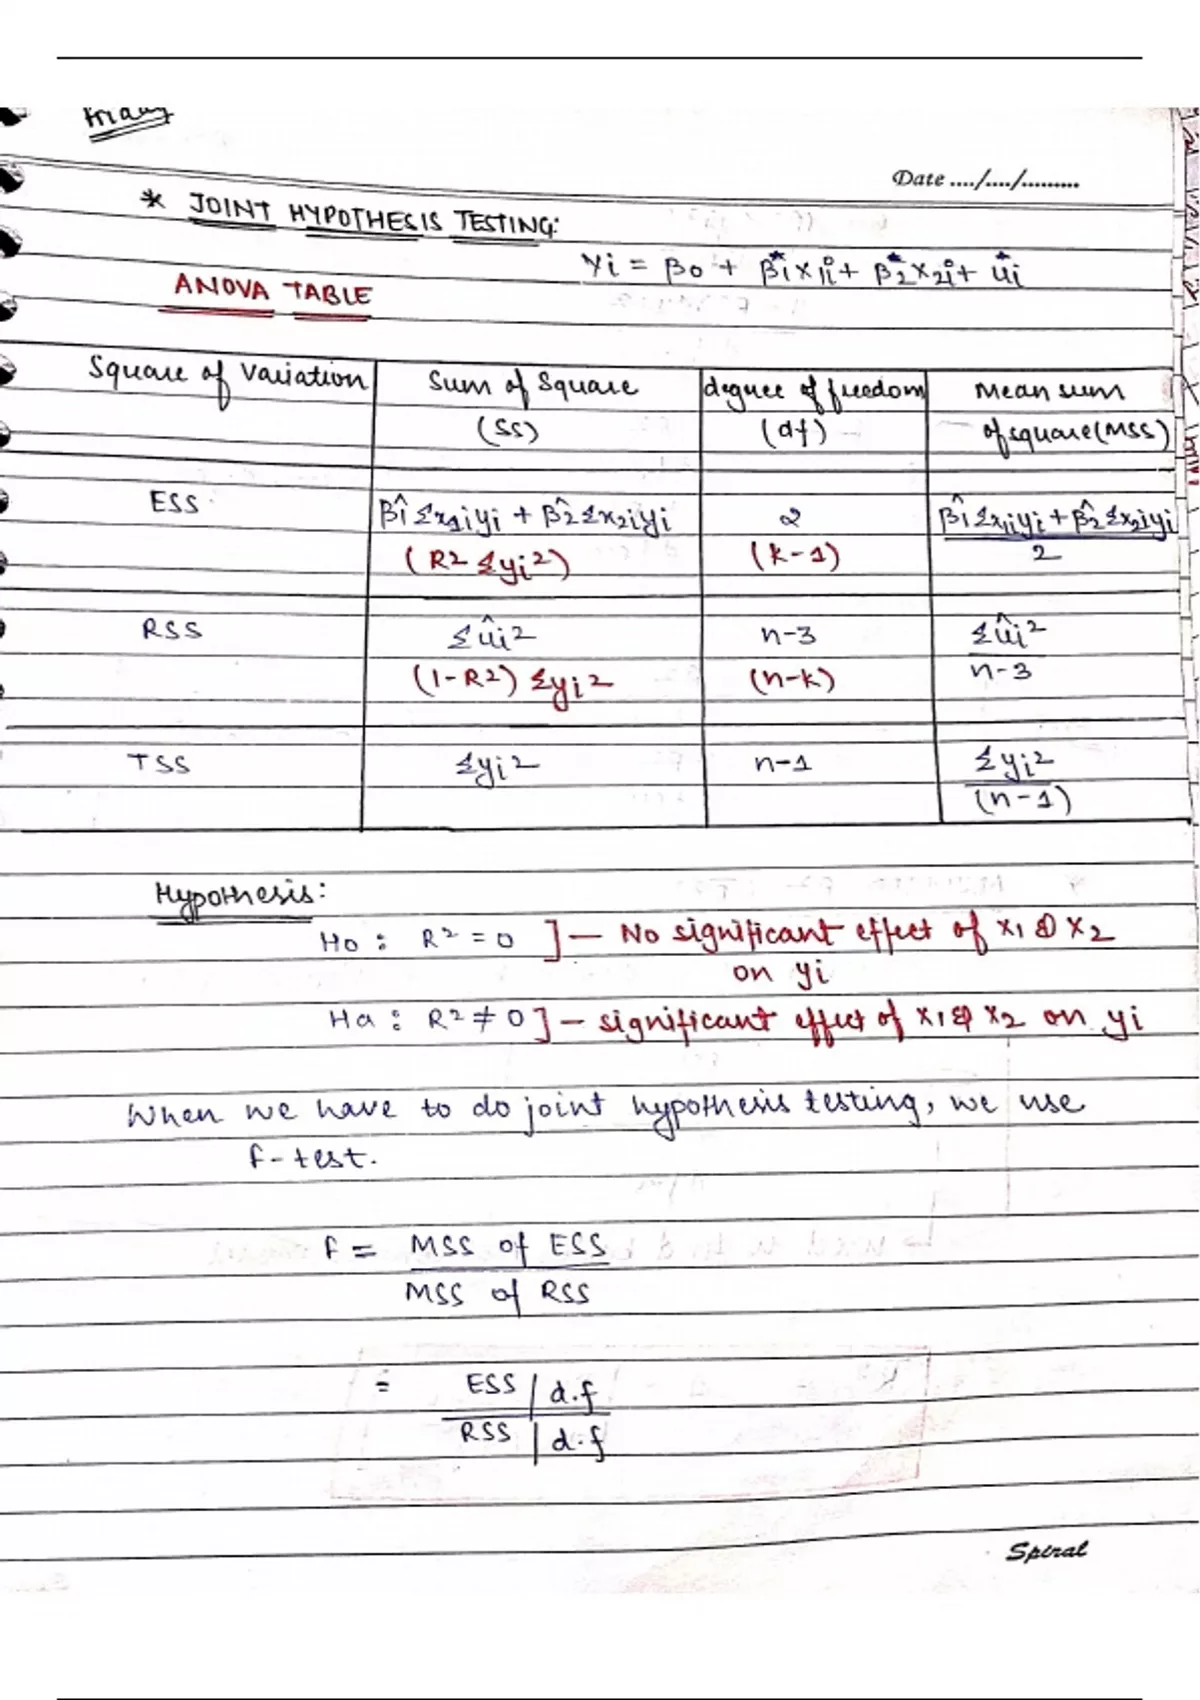 Date ..../..../.........
* JOINT HYPOTHESIS TESTING:
Yi = β0 + β1 X1i + β2 X2i + ui
ANOVA TABLE
Square of Variation | Sum of Square (SS) | degree of freedom (df) | Mean sum of square (MSS)
ESS | β̂1 Σx1iyi + β̂2 Σx2iyi | 2 | β̂1 Σx1iyi + β̂2 Σx2iyi / 2
(R² Σyi²) | (k-1)
RSS | Σûi² | n-3 | Σûi² / n-3
(1-R²) Σyi² | (n-k)
TSS | Σyi² | n-1 | Σyi² / (n-1)
Hypothesis:
Ho : R² = 0 ] — No significant effect of X1 & X2
on yi
Ha : R² ≠ 0 ] — significant effect of X1 & X2 on yi
When we have to do joint hypothesis testing, we use
f-test.
f = MSS of ESS
MSS of RSS
= ESS / d.f
RSS / d.f
Spiral